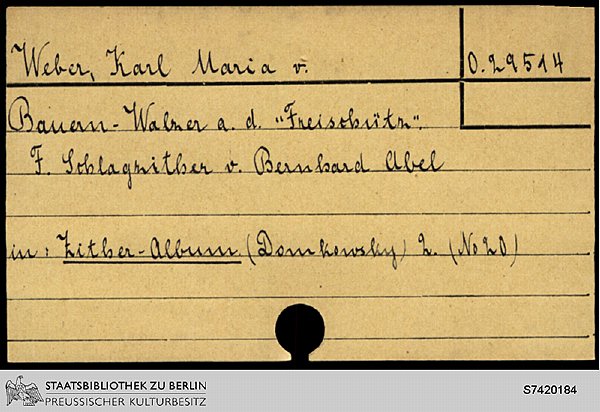 Weber, Karl Maria v.
O. 29514
Bauern-Walzer a. d. "Freischütz".
F. Schlagzither v. Bernhard Abel
in: Zither-Album (Domkowsky) 2. (No 20)
STAATSBIBLIOTHEK ZU BERLIN
PREUSSISCHER KULTURBESITZ
S7420184